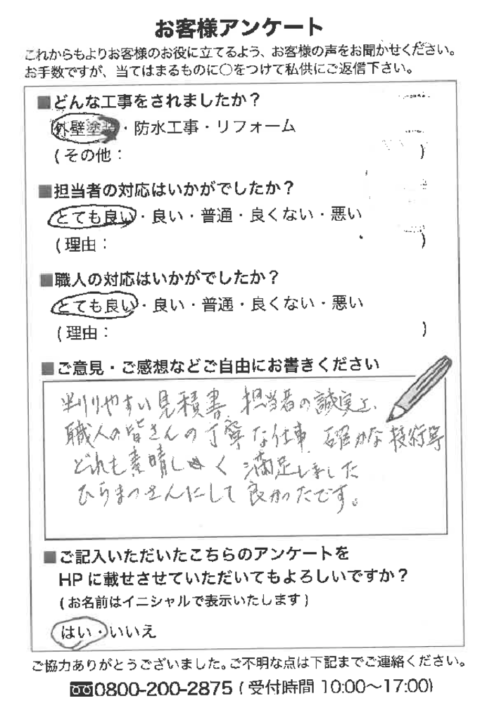 お客様アンケート
これからもよりお客様のお役に立てるよう、お客様の声をお聞かせください。
お手数ですが、当てはまるものに〇をつけて私供にご返信下さい。
■どんな工事をされましたか？
外壁塗装・防水工事・リフォーム
(その他： )
■担当者の対応はいかがでしたか？
とても良い・良い・普通・良くない・悪い
(理由： )
■職人の対応はいかがでしたか？
とても良い・良い・普通・良くない・悪い
(理由： )
■ご意見・ご感想などご自由にお書きください
判りやすい見積書、担当者の誠実さ、
職人の皆さんの丁寧な仕事、確かな技術等
どれも素晴しく 満足しました
ひらまつさんにして良かったです。
■ご記入いただいたこちらのアンケートを
HPに載せさせていただいてもよろしいですか？
(お名前はイニシャルで表示いたします)
はい・いいえ
ご協力ありがとうございました。ご不明な点は下記までご連絡ください。
0800-200-2875 (受付時間 10:00〜17:00)